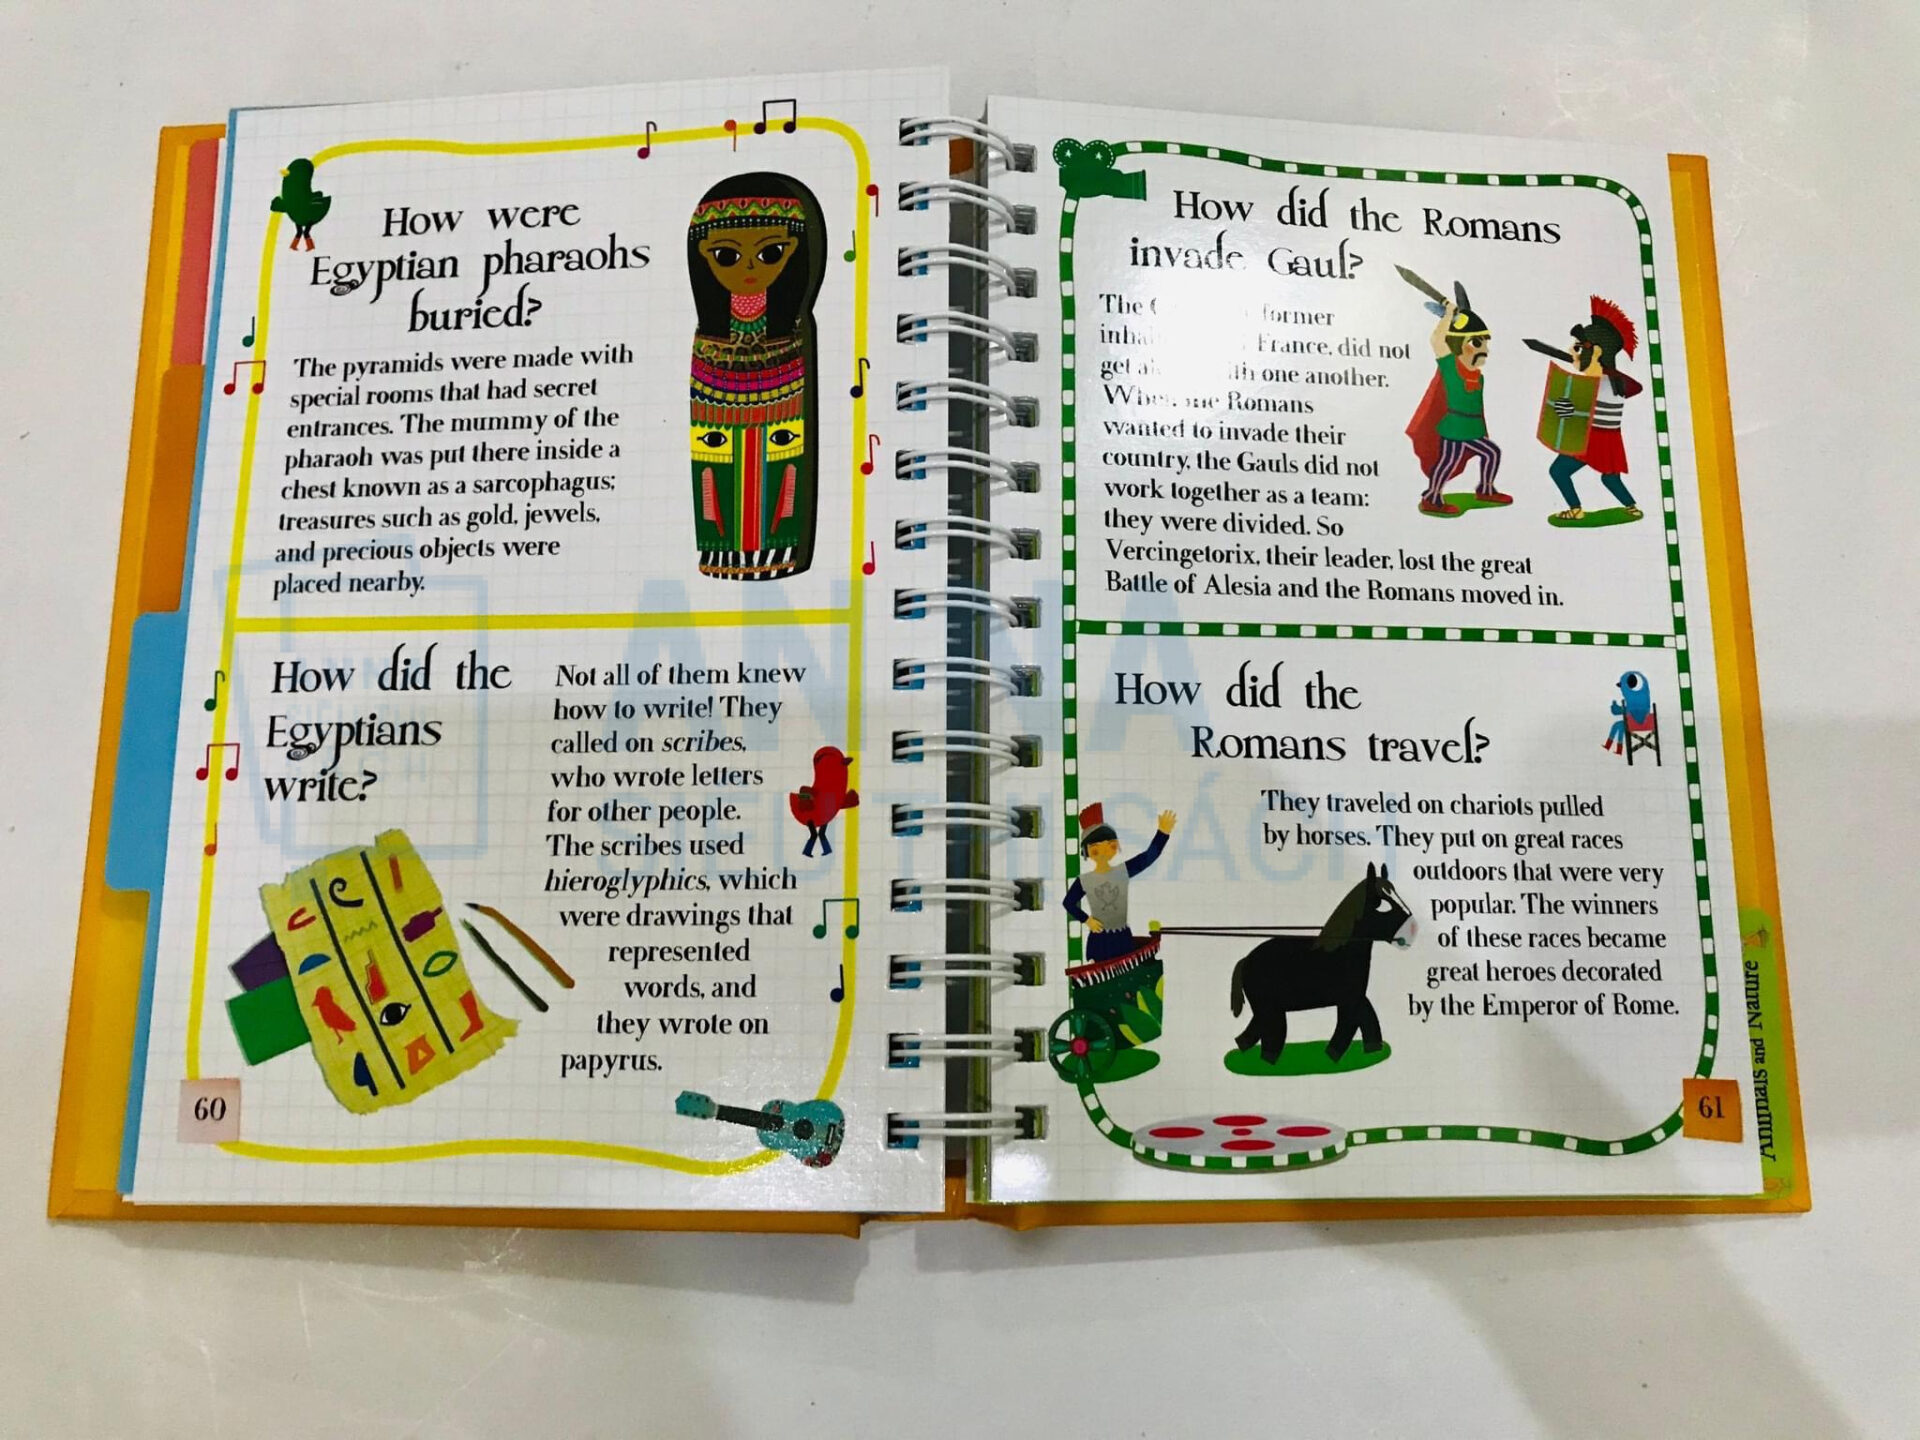 How were
Egyptian pharaohs
buried?
The pyramids were made with
special rooms that had secret
entrances. The mummy of the
pharaoh was put there inside a
chest known as a sarcophagus;
treasures such as gold, jewels,
and precious objects were
placed nearby.
How did the
Egyptians
write?
Not all of them knew
how to write! They
called on scribes,
who wrote letters
for other people.
The scribes used
hieroglyphics, which
were drawings that
represented
words, and
they wrote on
papyrus.
60
How did the Romans
invade Gaul?
The former
France, did not
get one another.
Romans
wanted to invade their
country, the Gauls did not
work together as a team:
they were divided. So
Vercingetorix, their leader, lost the great
Battle of Alesia and the Romans moved in.
How did the
Romans travel?
They traveled on chariots pulled
by horses. They put on great races
outdoors that were very
popular. The winners
of these races became
great heroes decorated
by the Emperor of Rome.
61
Animals and Nature
ANNA
SIÊU THỊ SÁCH